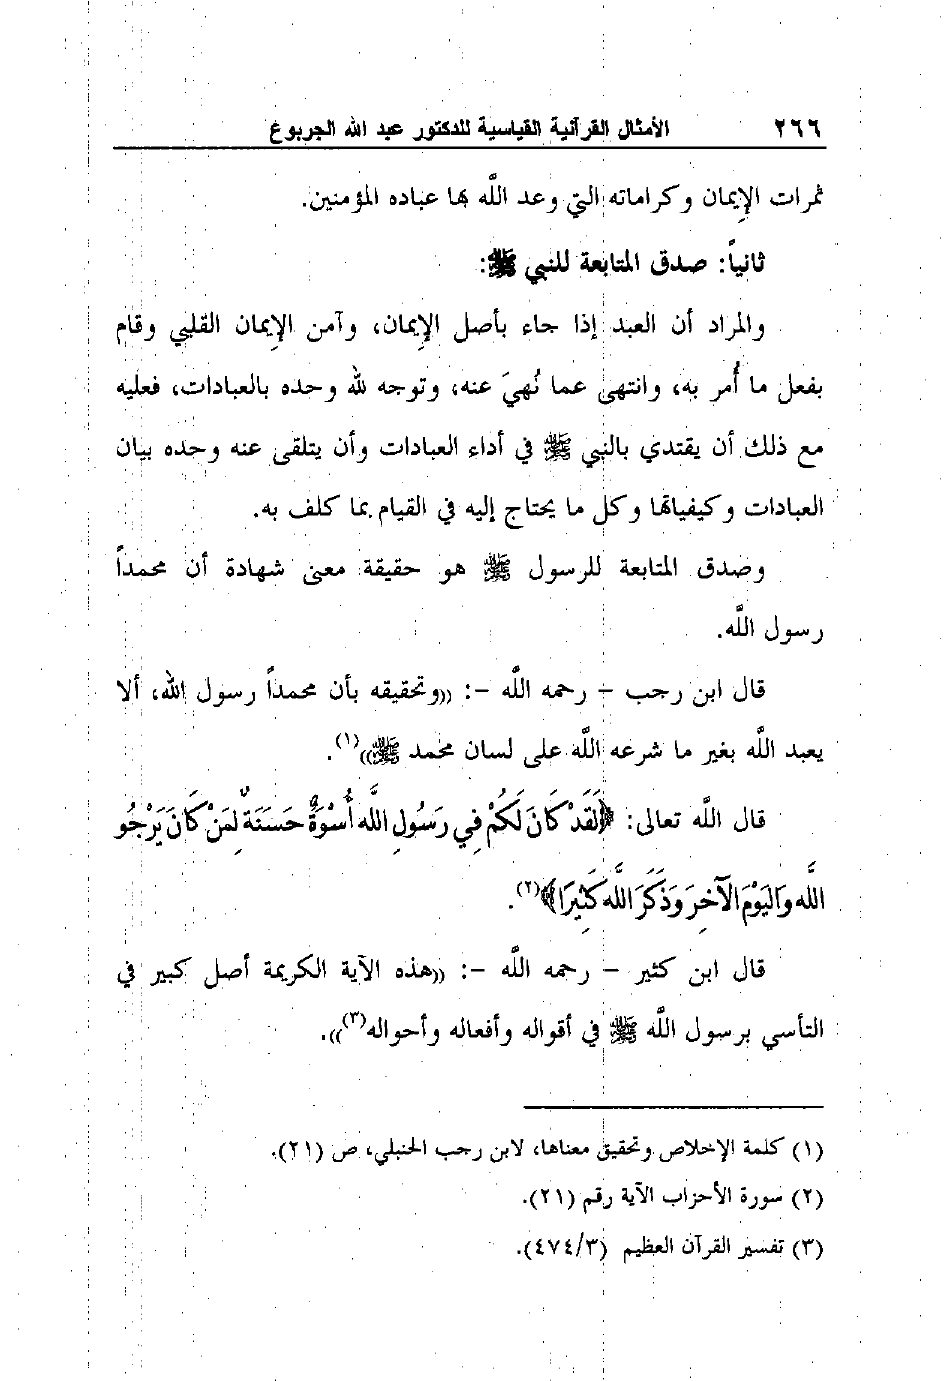 ٢٦٦ الأمثال القرآنية القياسية للدكتور عبد الله الجربوع
ثمرات الإيمان وكراماته التي وعد اللَّه بها عباده المؤمنين.
ثانياً: صدق المتابعة للنبي ﷺ:
والمراد أن العبد إذا جاء بأصل الإيمان، وآمن الإيمان القلبي وقام
بفعل ما أُمر به، وانتهى عما نُهيَ عنه، وتوجه لله وحده بالعبادات، فعليه
مع ذلك أن يقتدي بالنبي ﷺ في أداء العبادات وأن يتلقى عنه وحده بيان
العبادات وكيفياتها وكل ما يحتاج إليه في القيام بما كلف به.
وصدق المتابعة للرسول ﷺ هو حقيقة معنى شهادة أن محمداً
رسول اللَّه.
قال ابن رجب – رحمه اللَّه –: ((وتحقيقه بأن محمداً رسول الله، ألا
يعبد اللَّه بغير ما شرعه اللَّه على لسان محمد ﷺ))(١).
قال اللَّه تعالى: ﴿لَقَدْ كَانَ لَكُمْ فِي رَسُولِ اللَّه أُسْوَةٌ حَسَنَةٌ لِمَنْ كَانَ يَرْجُو
اللَّه وَاليَوْمَ الآخِرَ وَذَكَرَ اللَّه كَثِيرًا﴾(٢).
قال ابن كثير – رحمه اللَّه –: ((هذه الآية الكريمة أصل كبير في
التأسي برسول اللَّه ﷺ في أقواله وأفعاله وأحواله(٣))).
(١) كلمة الإخلاص وتحقيق معناها، لابن رجب الحنبلي، ص (٢١).
(٢) سورة الأحزاب الآية رقم (٢١).
(٣) تفسير القرآن العظيم (٤٧٤/٣).